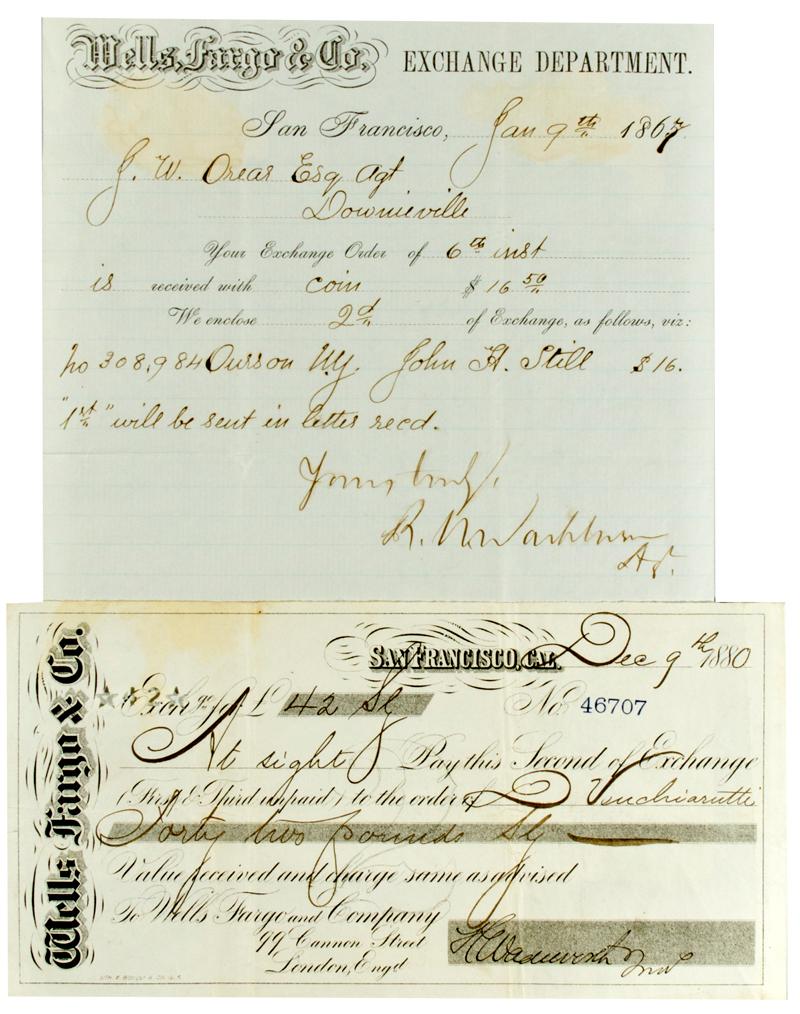 Wells, Fargo & Co. EXCHANGE DEPARTMENT.
San Francisco, Jan 9th 1867
J. W. Orear Esq Agt
Downieville
Your Exchange Order of 6th inst
is received with coin $16 50
We enclose 2d of Exchange, as follows, viz:
No 308,984 Ours on NY. John H. Still $16.
"1st" will be sent in letter recd.
Yours truly,
R. Washburn
Wells Fargo & Co.
SAN FRANCISCO, CAL. Dec 9th 1880
for £ 42 Stg No. 46707
At sight Pay this Second of Exchange
(First & Third unpaid) to the order of D Venchiarutti
Forty two pounds Stg
Value received and charge same as advised
To Wells Fargo and Company
99 Cannon Street
London, Engd
H Wadsworth